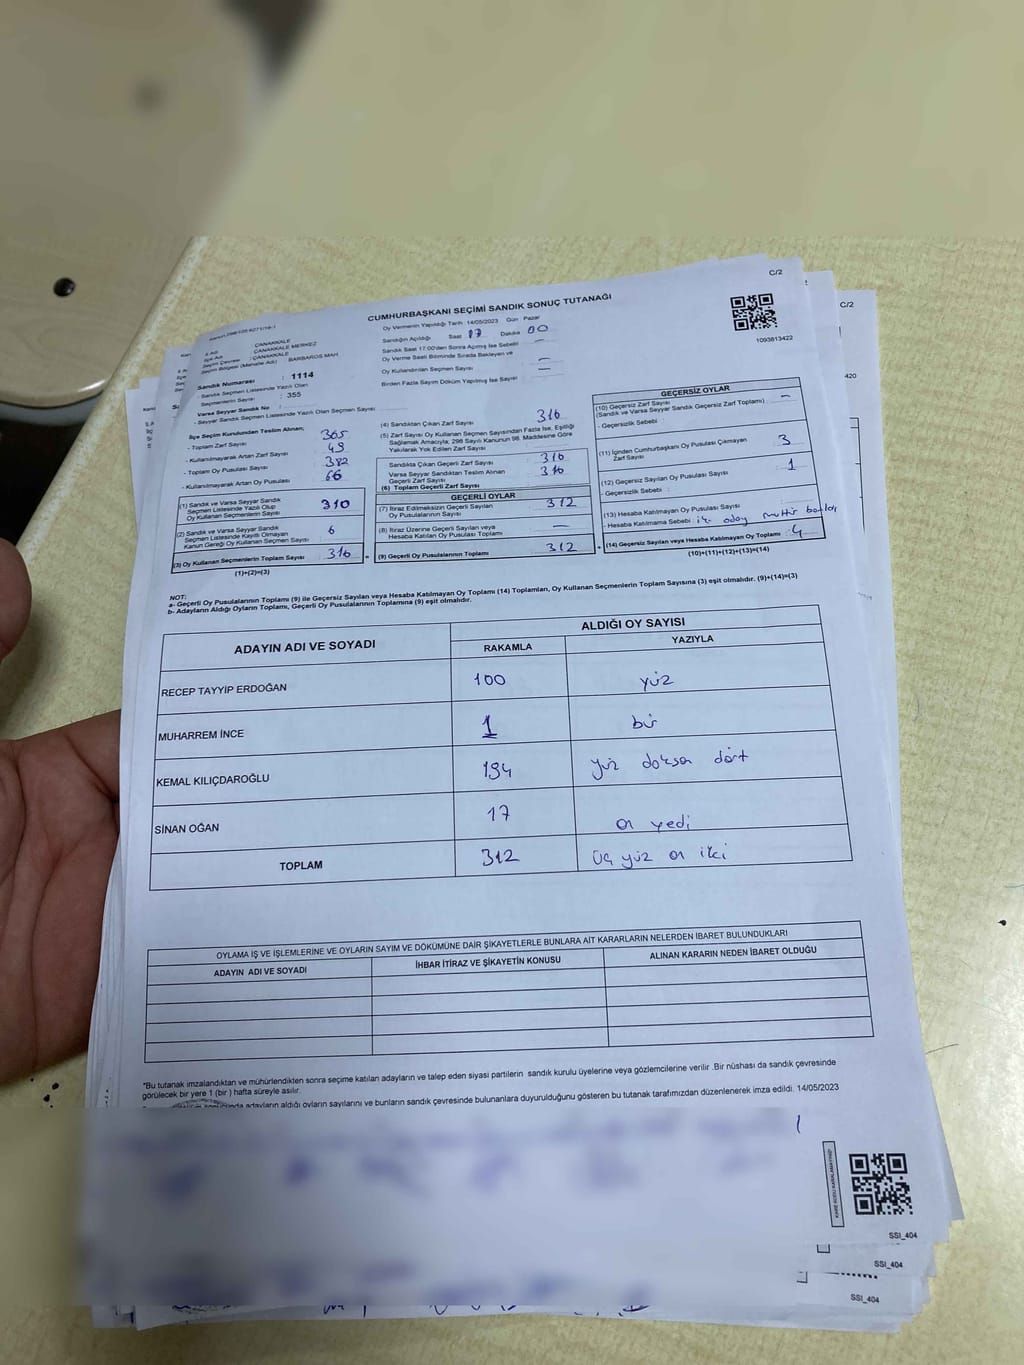 C/2
C/2
CUMHURBAŞKANI SEÇİMİ SANDIK SONUÇ TUTANAĞI
1093813422
420
İl Adı : ÇANAKKALE
İlçe Adı : ÇANAKKALE MERKEZ
Seçim Çevresi : ÇANAKKALE
Seçim Bölgesi (Mahalle Adı) : BARBAROS MAH.
Sandık Numarası : 1114
- Sandık Seçmen Listesinde Yazılı Olan
Seçmenlerin Sayısı : 355
Varsa Seyyar Sandık No :
- Seyyar Sandık Seçmen Listesinde Yazılı Olan Seçmen Sayısı :
Oy Vermenin Yapıldığı Tarih : 14/05/2023 Gün : Pazar
Sandığın Açıldığı Saat 17 Dakika 00
Sandık Saat 17:00'den Sonra Açılmış İse Sebebi —
Oy Verme Saati Bitiminde Sırada Bekleyen ve
Oy Kullandırılan Seçmen Sayısı —
Birden Fazla Sayım Döküm Yapılmış İse Sayısı —
İlçe Seçim Kurulundan Teslim Alınan;
- Toplam Zarf Sayısı 365
- Kullanılmayarak Artan Zarf Sayısı 49
- Toplam Oy Pusulası Sayısı 382
- Kullanılmayarak Artan Oy Pusulası 66
(1) Sandık ve Varsa Seyyar Sandık
Seçmen Listesinde Yazılı Olup
Oy Kullanan Seçmenlerin Sayısı 310
(2) Sandık ve Varsa Seyyar Sandık
Seçmen Listesinde Kayıtlı Olmayan
Kanun Gereği Oy Kullanan Seçmen Sayısı 6
(3) Oy Kullanan Seçmenlerin Toplam Sayısı 316
(1)+(2)=(3)
(4) Sandıktan Çıkan Zarf Sayısı 316
(5) Zarf Sayısı Oy Kullanan Seçmen Sayısından Fazla İse, Eşitliği
Sağlamak Amacıyla; 298 Sayılı Kanunun 98. Maddesine Göre
Yakılarak Yok Edilen Zarf Sayısı
Sandıkta Çıkan Geçerli Zarf Sayısı 316
Varsa Seyyar Sandıktan Teslim Alınan
Geçerli Zarf Sayısı 316
(6) Toplam Geçerli Zarf Sayısı
GEÇERLİ OYLAR
(7) İtiraz Edilmeksizin Geçerli Sayılan
Oy Pusulalarının Sayısı 312
(8) İtiraz Üzerine Geçerli Sayılan veya
Hesaba Katılan Oy Pusulası Toplamı —
(9) Geçerli Oy Pusulalarının Toplamı 312
GEÇERSİZ OYLAR
(10) Geçersiz Zarf Sayısı
(Sandık ve Varsa Seyyar Sandık Geçersiz Zarf Toplamı) : —
- Geçersizlik Sebebi :
(11) İçinden Cumhurbaşkanı Oy Pusulası Çıkmayan
Zarf Sayısı 3
(12) Geçersiz Sayılan Oy Pusulası Sayısı 1
- Geçersizlik Sebebi :
(13) Hesaba Katılmayan Oy Pusulası Sayısı
- Hesaba Katılmama Sebebi
(14) Geçersiz Sayılan veya Hesaba Katılmayan Oy Toplamı 4
(10)+(11)+(12)+(13)=(14)
NOT:
a- Geçerli Oy Pusulalarının Toplamı (9) ile Geçersiz Sayılan veya Hesaba Katılmayan Oy Toplamı (14) Toplamları, Oy Kullanan Seçmenlerin Toplam Sayısına (3) eşit olmalıdır. (9)+(14)=(3)
b- Adayların Aldığı Oyların Toplamı, Geçerli Oy Pusulalarının Toplamına (9) eşit olmalıdır.
ADAYIN ADI VE SOYADI ALDIĞI OY SAYISI
RAKAMLA YAZIYLA
RECEP TAYYİP ERDOĞAN 100 yüz
MUHARREM İNCE 1 bir
KEMAL KILIÇDAROĞLU 194 yüz doksan dört
SİNAN OĞAN 17 on yedi
TOPLAM 312 üç yüz on iki
OYLAMA İŞ VE İŞLEMLERİNE VE OYLARIN SAYIM VE DÖKÜMÜNE DAİR ŞİKAYETLERLE BUNLARA AİT KARARLARIN NELERDEN İBARET BULUNDUKLARI
ADAYIN ADI VE SOYADI İHBAR İTİRAZ VE ŞİKAYETİN KONUSU ALINAN KARARIN NEDEN İBARET OLDUĞU
*Bu tutanak imzalandıktan ve mühürlendikten sonra seçime katılan adayların ve talep eden siyasi partilerin sandık kurulu üyelerine veya gözlemcilerine verilir .Bir nüshası da sandık çevresinde
görülecek bir yere 1 (bir ) hafta süreyle asılır.
adayların aldığı oyların sayılarını ve bunların sandık çevresinde bulunanlara duyurulduğunu gösteren bu tutanak tarafımızdan düzenlenerek imza edildi. 14/05/2023
KARE KODU KARALAMAYINIZ!
SSI_404
SSI_404
SSI_404